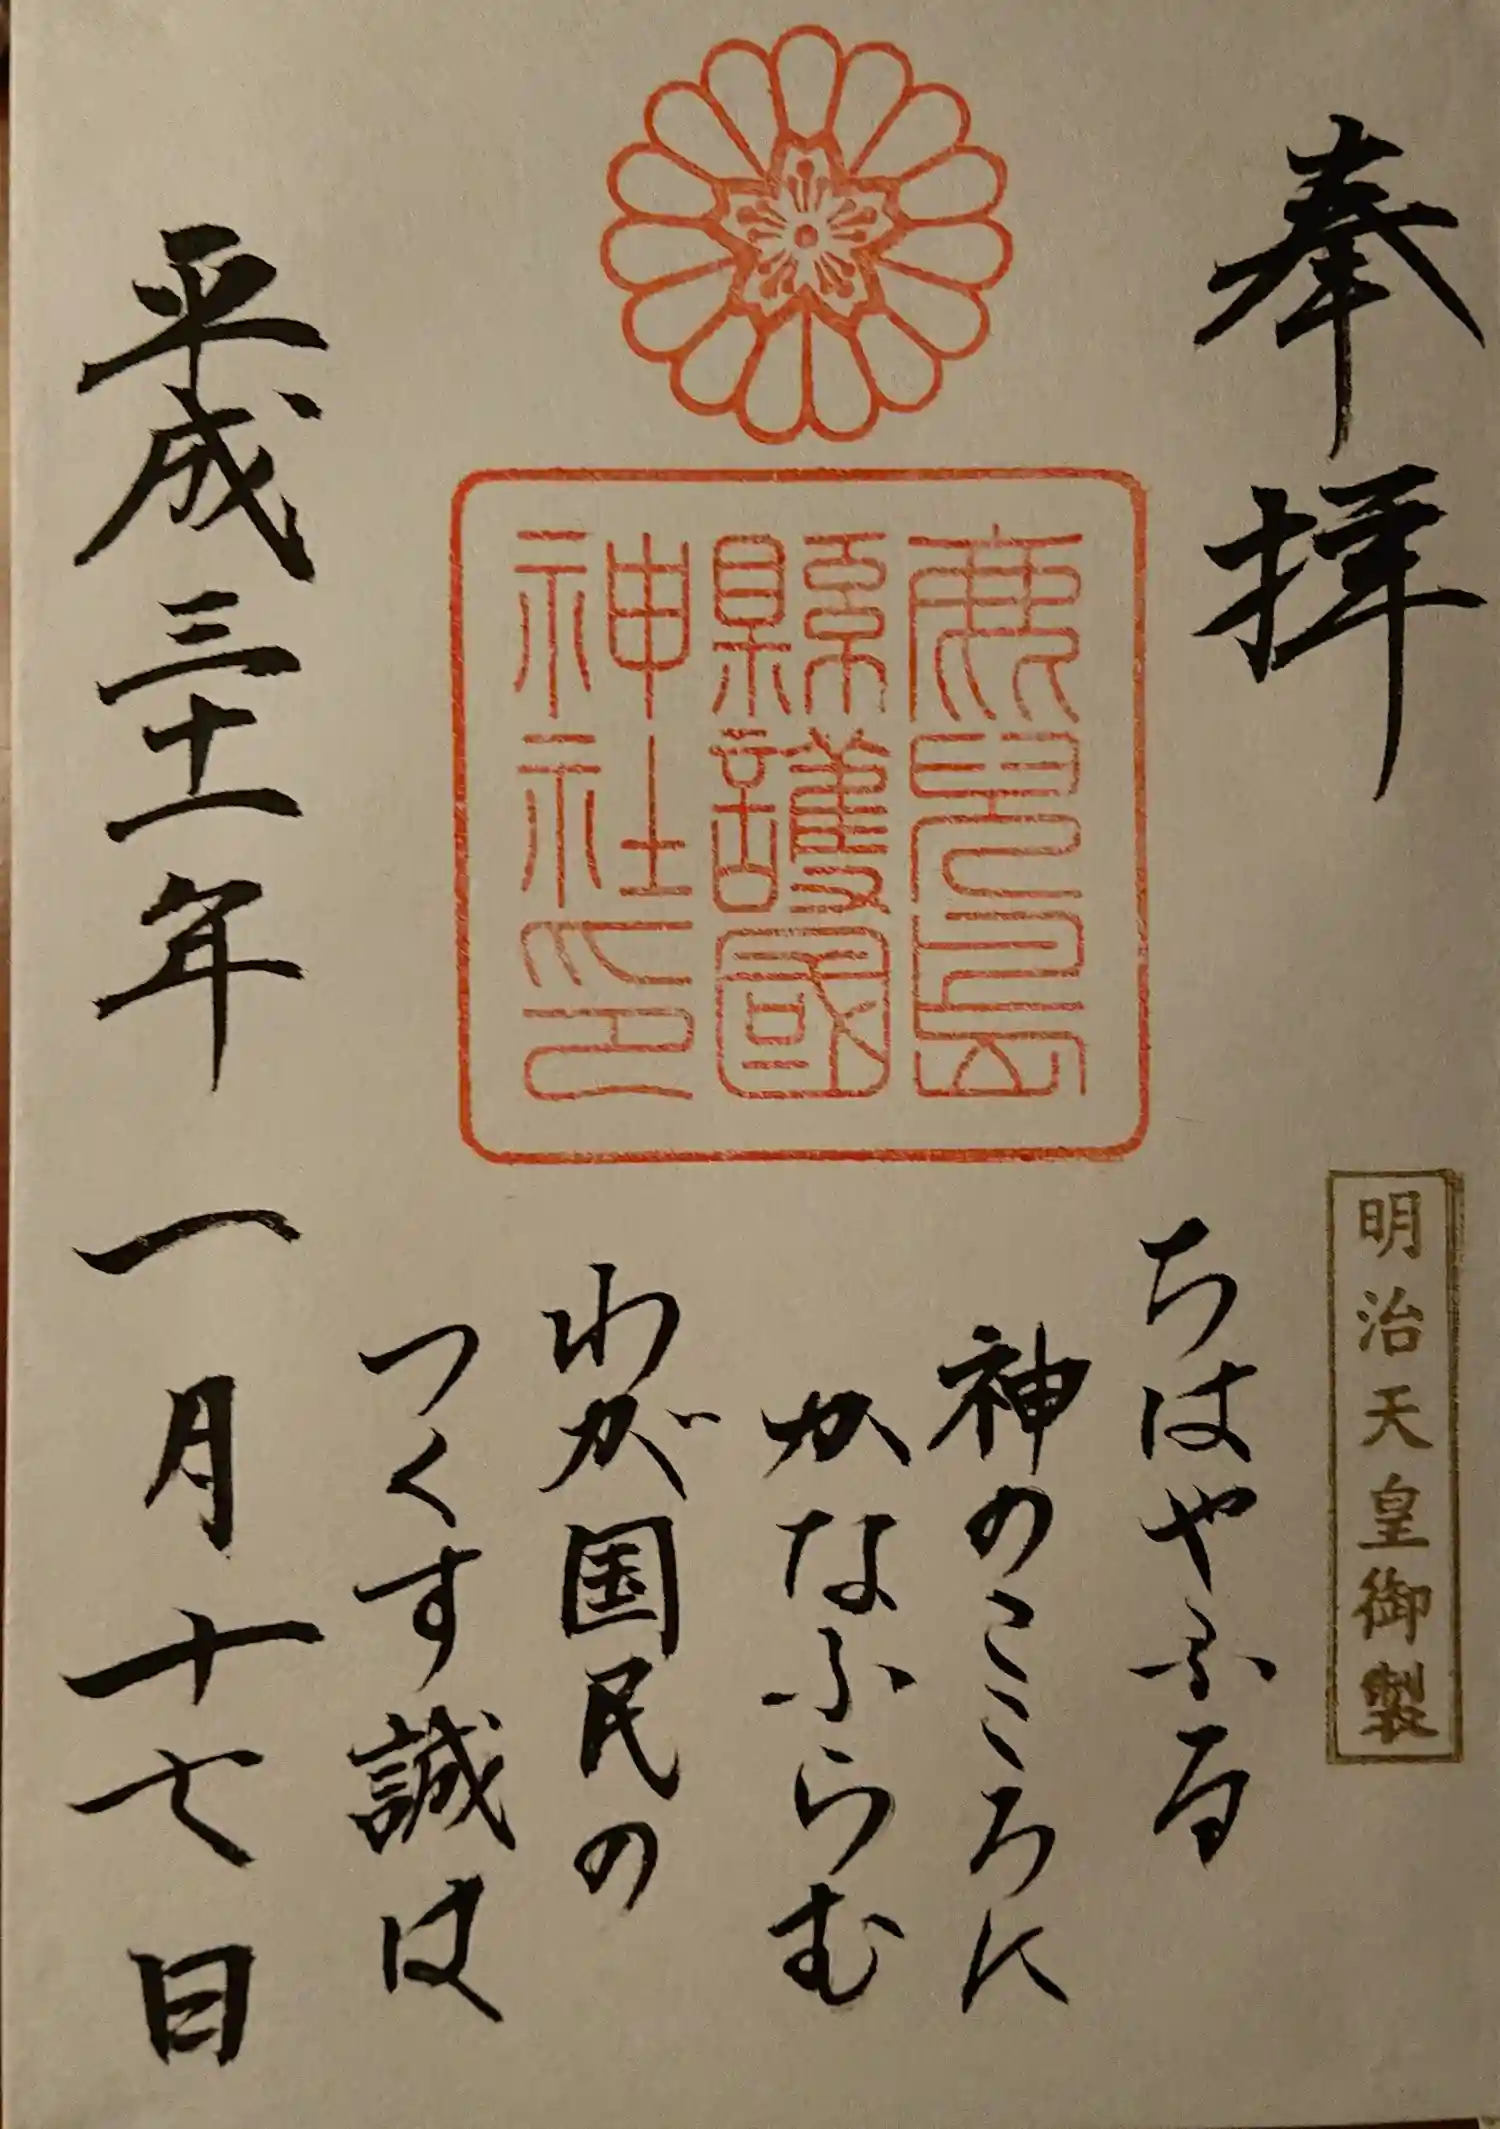 奉拝
明治天皇御製
ちはやふる
神のこころに
かなふらむ
わが国民の
つくす誠は
鹿兒島
縣護國
神社印
平成三十一年一月十七日